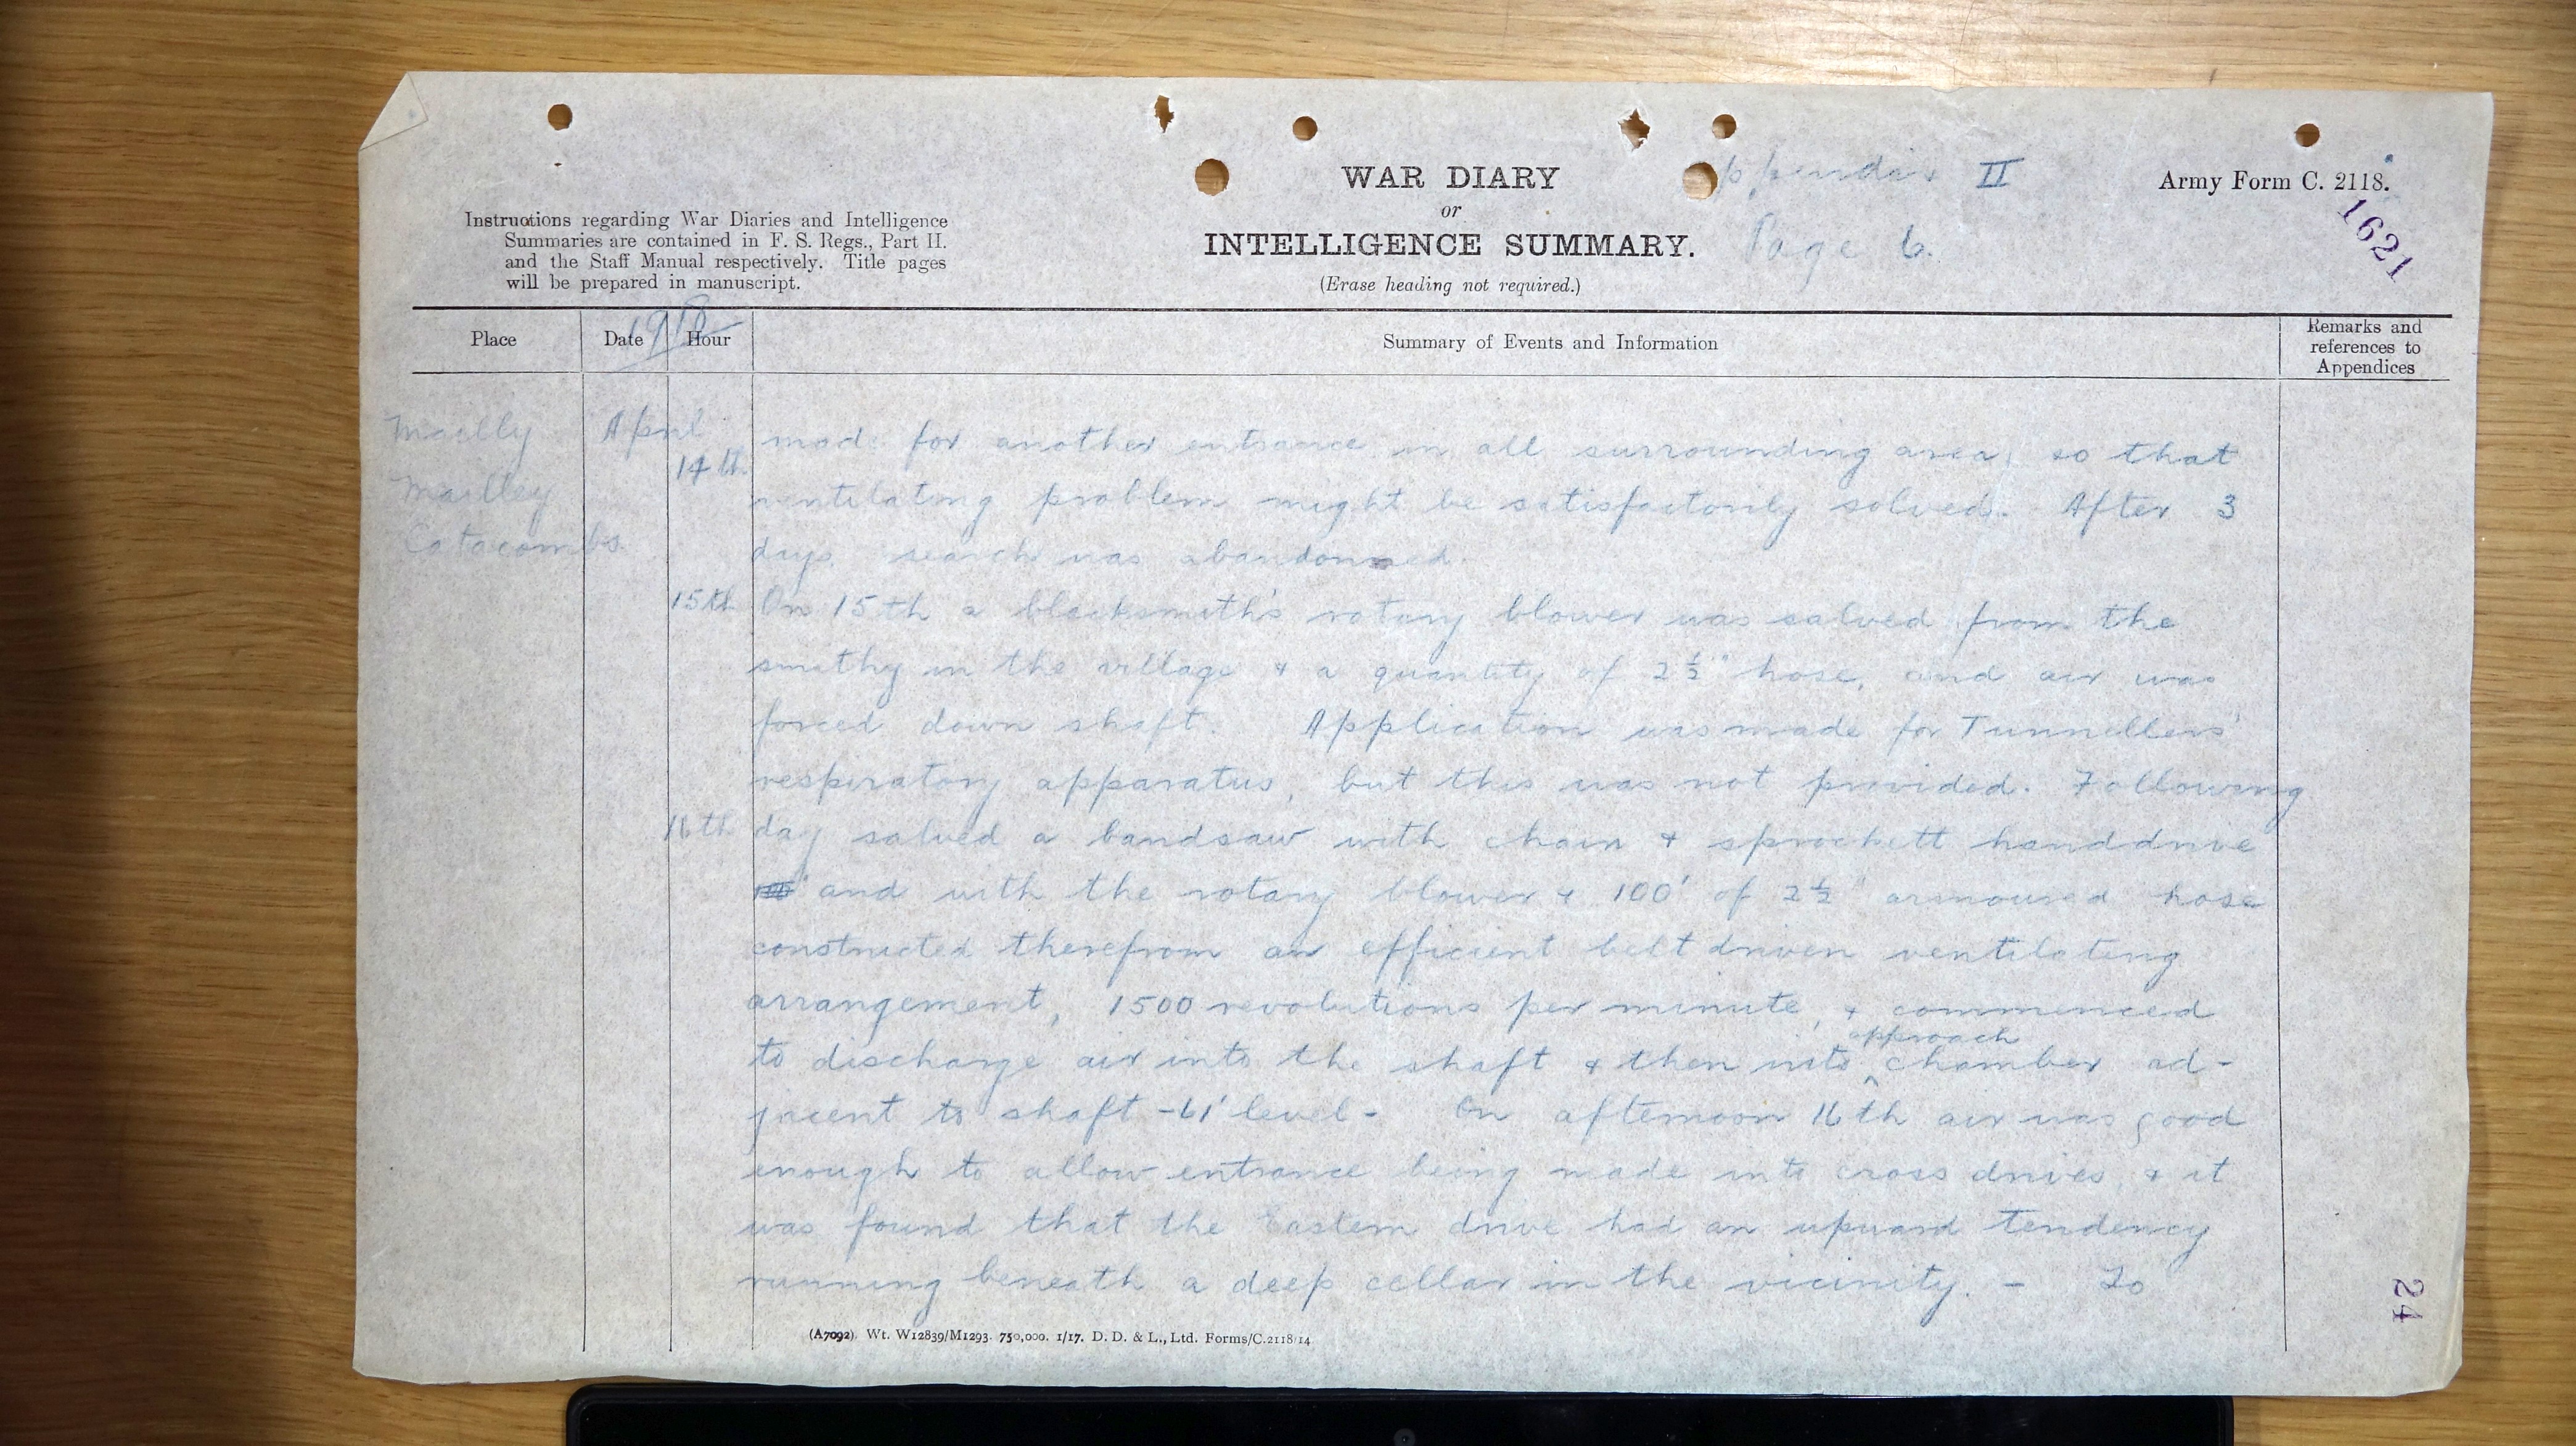 WAR DIARY
or
INTELLIGENCE SUMMARY.
(Erase heading not required.)
ppendix II
Page 6.
Army Form C. 2118.
1621
Instructions regarding War Diaries and Intelligence
Summaries are contained in F. S. Regs., Part II.
and the Staff Manual respectively. Title pages
will be prepared in manuscript.
1918
Place Date Hour Summary of Events and Information Remarks and
references to
Appendices
Mailly
Mailley
Catacombs
April
14th made for another entrance in all surrounding area, so that
ventilating problem might be satisfactorily solved. After 3
days search was abandonned.
15th On 15th a blacksmith's rotary blower was salved from the
smithy in the village & a quantity of 2½" hose, and air was
forced down shaft. Application was made for Tunnellers'
respiratory apparatus, but this was not provided. Following
16th day salved a bandsaw with chain & sprockett handdrive
and with the rotary blower & 100' of 2½" armoured hose
constructed therefrom an efficient belt driven ventilating
arrangement, 1500 revolutions per minute, & commenced
to discharge air into the shaft & then into approach chamber ad-
jacent to shaft -61' level- On afternoon 16th air was good
enough to allow entrance being made into cross drives, & it
was found that the Eastern drive had an upward tendency
running beneath a deep cellar in the vicinity. - To
24
(A7092). Wt. W12839/M1293. 750,000. 1/17. D. D. & L., Ltd. Forms/C.2118/14